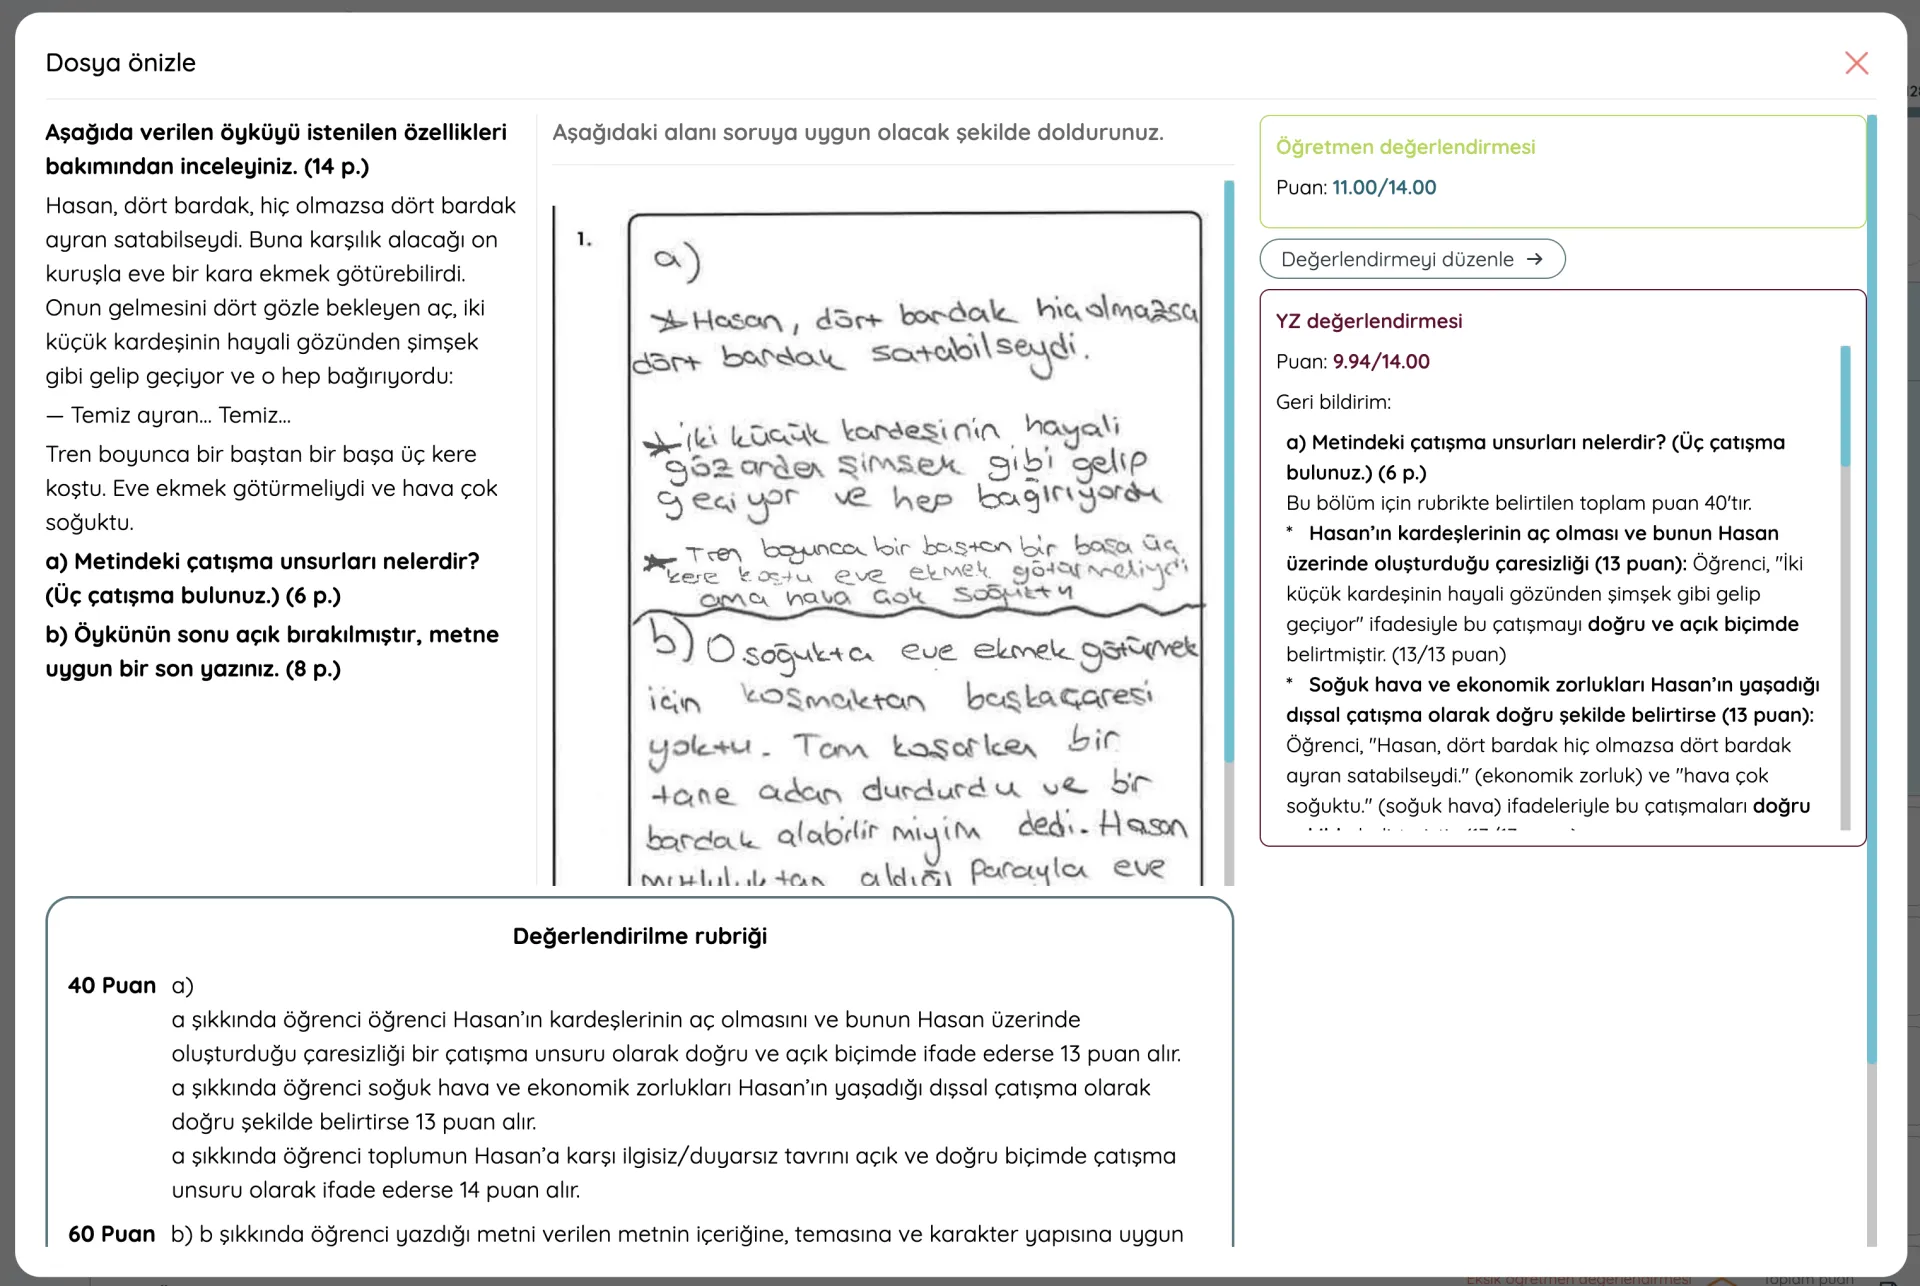 Dosya önizle
Aşağıda verilen öyküyü istenilen özellikleri
bakımından inceleyiniz. (14 p.)
Hasan, dört bardak, hiç olmazsa dört bardak
ayran satabilseydi. Buna karşılık alacağı on
kuruşla eve bir kara ekmek götürebilirdi.
Onun gelmesini dört gözle bekleyen aç, iki
küçük kardeşinin hayali gözünden şimşek
gibi gelip geçiyor ve o hep bağırıyordu:
— Temiz ayran... Temiz...
Tren boyunca bir baştan bir başa üç kere
koştu. Eve ekmek götürmeliydi ve hava çok
soğuktu.
a) Metindeki çatışma unsurları nelerdir?
(Üç çatışma bulunuz.) (6 p.)
b) Öykünün sonu açık bırakılmıştır, metne
uygun bir son yazınız. (8 p.)
Aşağıdaki alanı soruya uygun olacak şekilde doldurunuz.
1.
a)
Hasan, dört bardak hiç olmazsa
dört bardak satabilseydi.
iki küçük kardeşinin hayali
gözarden şimşek gibi gelip
geçiyor ve hep bağırıyordu
Tren boyunca bir baştan bir başa üç
kere koştu eve ekmek götürmeliydi
ama hava çok soğuktu
b) O soğukta eve ekmek götürmek
için koşmaktan başka çaresi
yoktu. Tam koşarken bir
tane adan durdurdu ve bir
bardak alabilir miyim dedi. Hasan
mutluluktan aldığı parayla eve
Öğretmen değerlendirmesi
Puan: 11.00/14.00
Değerlendirmeyi düzenle →
YZ değerlendirmesi
Puan: 9.94/14.00
Geri bildirim:
a) Metindeki çatışma unsurları nelerdir? (Üç çatışma
bulunuz.) (6 p.)
Bu bölüm için rubrikte belirtilen toplam puan 40'tır.
* Hasan’ın kardeşlerinin aç olması ve bunun Hasan
üzerinde oluşturduğu çaresizliği (13 puan): Öğrenci, "İki
küçük kardeşinin hayali gözünden şimşek gibi gelip
geçiyor" ifadesiyle bu çatışmayı doğru ve açık biçimde
belirtmiştir. (13/13 puan)
* Soğuk hava ve ekonomik zorlukları Hasan’ın yaşadığı
dışsal çatışma olarak doğru şekilde belirtirse (13 puan):
Öğrenci, "Hasan, dört bardak hiç olmazsa dört bardak
ayran satabilseydi." (ekonomik zorluk) ve "hava çok
soğuktu." (soğuk hava) ifadeleriyle bu çatışmaları doğru
Değerlendirilme rubriği
40 Puan a)
a şıkkında öğrenci öğrenci Hasan’ın kardeşlerinin aç olmasını ve bunun Hasan üzerinde
oluşturduğu çaresizliği bir çatışma unsuru olarak doğru ve açık biçimde ifade ederse 13 puan alır.
a şıkkında öğrenci soğuk hava ve ekonomik zorlukları Hasan’ın yaşadığı dışsal çatışma olarak
doğru şekilde belirtirse 13 puan alır.
a şıkkında öğrenci toplumun Hasan’a karşı ilgisiz/duyarsız tavrını açık ve doğru biçimde çatışma
unsuru olarak ifade ederse 14 puan alır.
60 Puan b) b şıkkında öğrenci yazdığı metni verilen metnin içeriğine, temasına ve karakter yapısına uygun